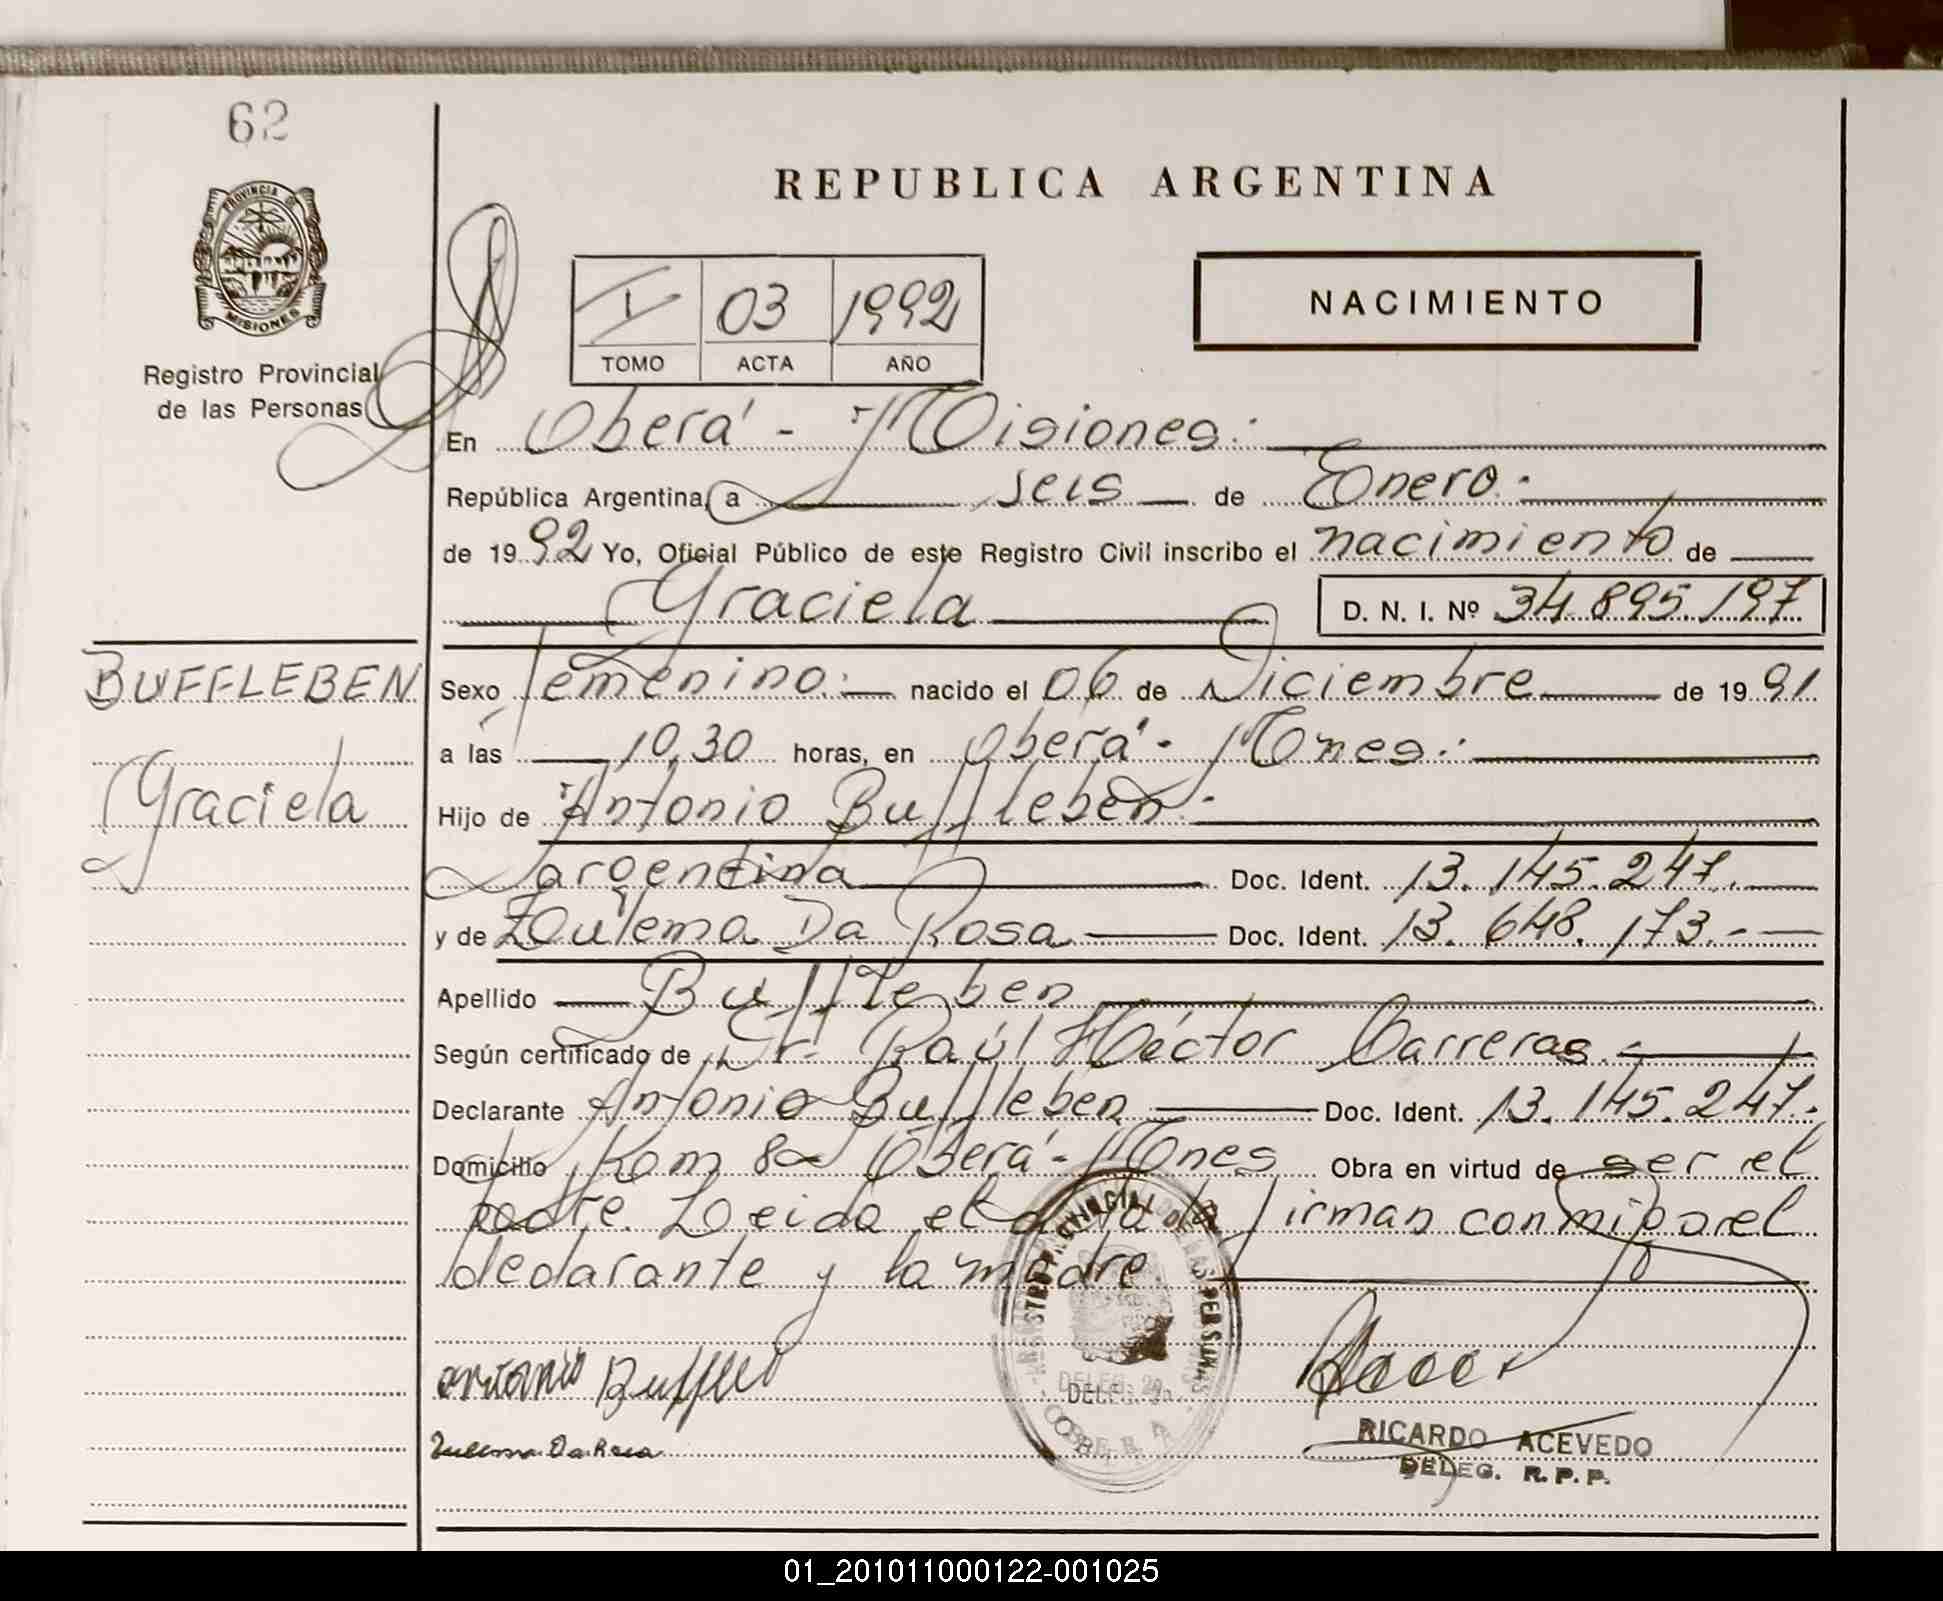 62
PROVINCIA DE
MISIONES
Registro Provincial
de las Personas
REPUBLICA ARGENTINA
I 03 1992
TOMO ACTA AÑO
NACIMIENTO
En Oberá - Misiones.-
República Argentina, a seis de Enero.-
de 1992 Yo, Oficial Público de este Registro Civil inscribo el nacimiento de
Graciela D. N. I. Nº 34.895.197
BUFFLEBEN
Graciela
Sexo femenino.- nacido el 06 de Diciembre de 1991
a las 10,30 horas, en Oberá - Mnes.-
Hijo de Antonio Buffleben.-
argentina Doc. Ident. 13.145.247.
y de Zulema Da Rosa Doc. Ident. 13.648.173.-
Apellido Buffleben
Según certificado de Dr. Raúl Héctor Carreras.-
Declarante Antonio Buffleben Doc. Ident. 13.145.247.-
Domicilio Kom 8 Oberá - Mnes Obra en virtud de ser el
padre. Leida el acta la firman conmigo el
declarante y la madre.
REGISTRO PROVINCIAL DE LAS PERSONAS
DELEG.
Antonio Buffleb
Zulema Da Rosa
RICARDO ACEVEDO
DELEG. R. P. P.
01_201011000122-001025